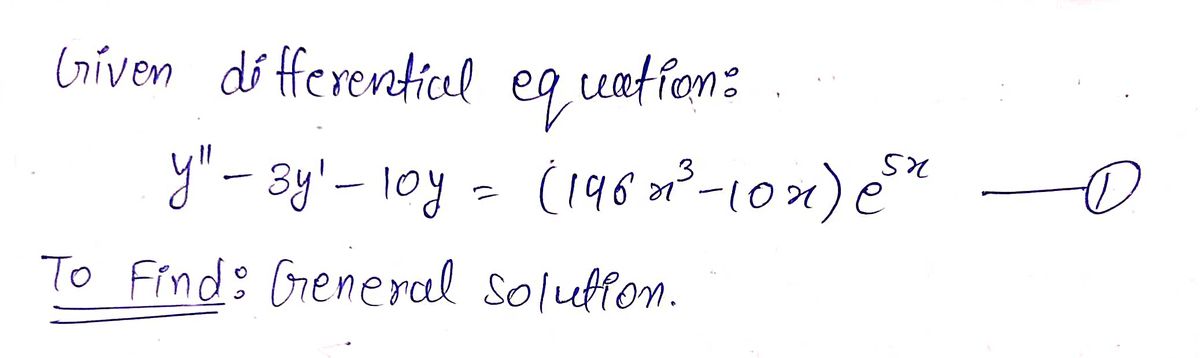 Given differential equation:
y'' - 3y' - 10y = (196x³-10x) e⁵ˣ —①
To Find: General solution.